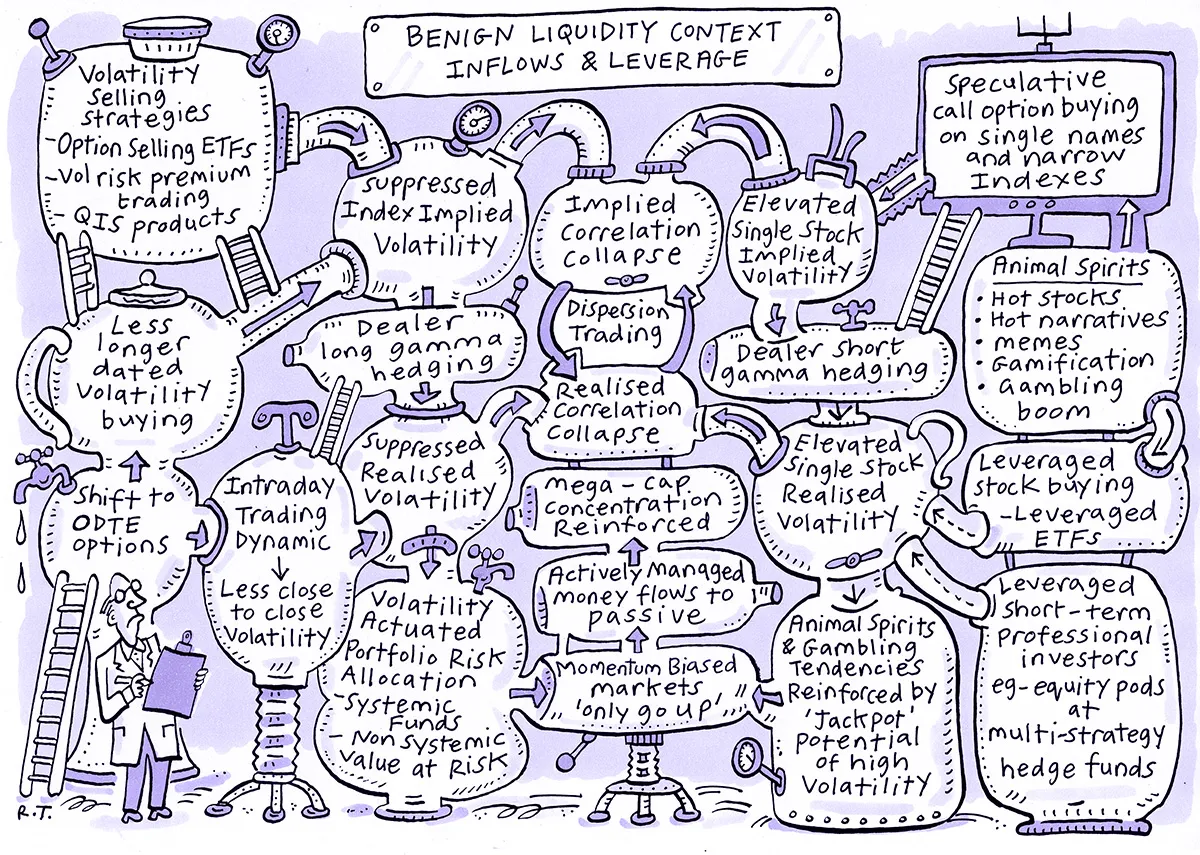 BENIGN LIQUIDITY CONTEXT
INFLOWS & LEVERAGE
Volatility
Selling
strategies
-Option Selling ETFs
-Vol risk premium
trading
- QIS products
Suppressed
Index Implied
Volatility
Implied
Correlation
Collapse
Elevated
Single Stock
Implied
Volatility
Speculative
call option buying
on single names
and narrow
Indexes
Less
longer
dated
Volatility
buying
Dealer
long gamma
hedging
Dispersion
Trading
Dealer Short
gamma hedging
Animal Spirits
• Hot stocks
• Hot narratives
• memes
• Gamification
• Gambling
boom
Shift to
ODTE
options
Intraday
Trading
Dynamic
↓
Less close
to close
Volatility
Suppressed
Realised
Volatility
Realised
Correlation
Collapse
Elevated
Single Stock
Realised
Volatility
Leveraged
stock buying
-Leveraged
ETFs
mega-cap
Concentration
Reinforced
Actively managed
money flows to
passive
Volatility
Actuated
Portfolio Risk
Allocation
-Systemic
Funds
- Non Systemic
Value at Risk
Momentum Biased
markets
'only go up'
Animal Spirits
& Gambling
Tendencies
Reinforced by
'Jackpot'
potential
of high
Volatility
Leveraged
short-term
professional
investors
eg-equity pods
at
multi-strategy
hedge funds
R.T.